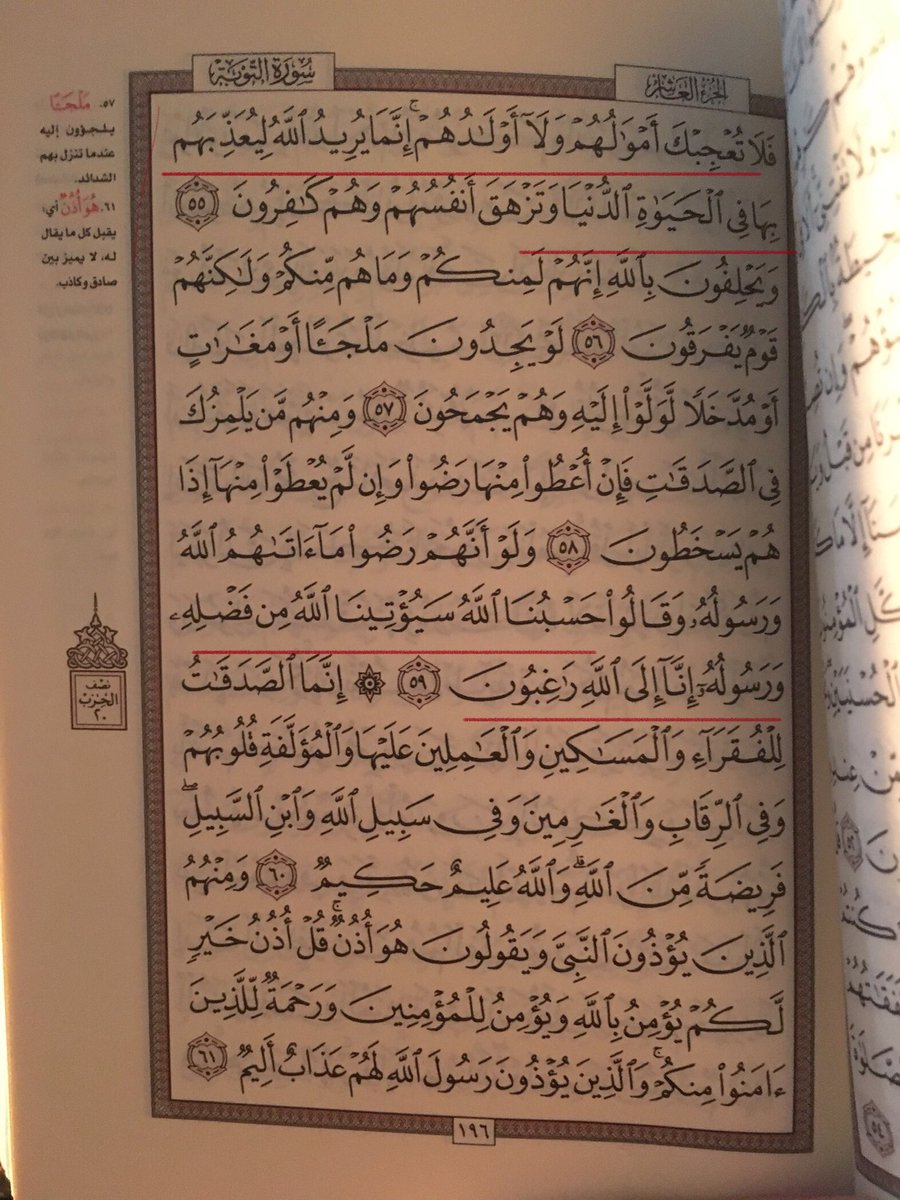 سُورَةُ التَّوْبَةِ
الجُزْءُ العَاشِرُ
فَلَا تُعْجِبْكَ أَمْوَٰلُهُمْ وَلَآ أَوْلَٰدُهُمْ ۚ إِنَّمَا يُرِيدُ ٱللَّهُ لِيُعَذِّبَهُم
بِهَا فِي ٱلْحَيَوٰةِ ٱلدُّنْيَا وَتَزْهَقَ أَنفُسُهُمْ وَهُمْ كَٰفِرُونَ ٥٥
وَيَحْلِفُونَ بِٱللَّهِ إِنَّهُمْ لَمِنكُمْ وَمَا هُم مِّنكُمْ وَلَٰكِنَّهُمْ
قَوْمٌ يَفْرَقُونَ ٥٦ لَوْ يَجِدُونَ مَلْجَـًٔا أَوْ مَغَٰرَٰتٍ
أَوْ مُدَّخَلًا لَّوَلَّوْا۟ إِلَيْهِ وَهُمْ يَجْمَحُونَ ٥٧ وَمِنْهُم مَّن يَلْمِزُكَ
فِي ٱلصَّدَقَٰتِ فَإِنْ أُعْطُوا۟ مِنْهَا رَضُوا۟ وَإِن لَّمْ يُعْطَوْا۟ مِنْهَآ إِذَا
هُمْ يَسْخَطُونَ ٥٨ وَلَوْ أَنَّهُمْ رَضُوا۟ مَآ ءَاتَىٰهُمُ ٱللَّهُ
وَرَسُولُهُۥ وَقَالُوا۟ حَسْبُنَا ٱللَّهُ سَيُؤْتِينَا ٱللَّهُ مِن فَضْلِهِۦ
وَرَسُولُهُۥٓ إِنَّآ إِلَى ٱللَّهِ رَٰغِبُونَ ٥٩ ۞ إِنَّمَا ٱلصَّدَقَٰتُ
لِلْفُقَرَآءِ وَٱلْمَسَٰكِينِ وَٱلْعَٰمِلِينَ عَلَيْهَا وَٱلْمُؤَلَّفَةِ قُلُوبُهُمْ
وَفِي ٱلرِّقَابِ وَٱلْغَٰرِمِينَ وَفِي سَبِيلِ ٱللَّهِ وَٱبْنِ ٱلسَّبِيلِ ۖ
فَرِيضَةً مِّنَ ٱللَّهِ ۗ وَٱللَّهُ عَلِيمٌ حَكِيمٌ ٦٠ وَمِنْهُمُ
ٱلَّذِينَ يُؤْذُونَ ٱلنَّبِيَّ وَيَقُولُونَ هُوَ أُذُنٌ ۚ قُلْ أُذُنُ خَيْرٍ
لَّكُمْ يُؤْمِنُ بِٱللَّهِ وَيُؤْمِنُ لِلْمُؤْمِنِينَ وَرَحْمَةٌ لِّلَّذِينَ
ءَامَنُوا۟ مِنكُمْ ۚ وَٱلَّذِينَ يُؤْذُونَ رَسُولَ ٱللَّهِ لَهُمْ عَذَابٌ أَلِيمٌ ٦١
١٩٦
٥٧. مَلْجَـًٔا
يلجؤون إليه
عندما تنزل بهم
الشدائد.
٦١. هُوَ أُذُنٌ أي:
يقبل كل ما يقال
له، لا يميز بين
صادق وكاذب.
نصف
الحزب
٢٠